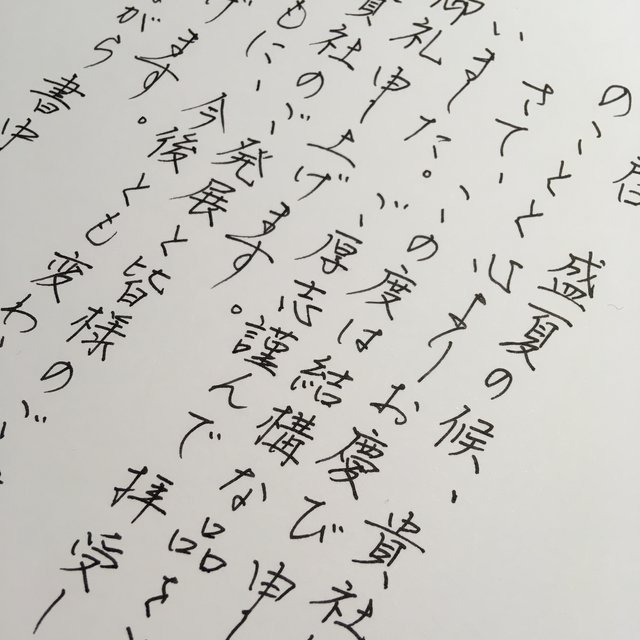 啓 盛夏の候、貴社
のこととと心よりお慶び申
さて、この度は結構な品を
いました。ご厚志謹んで拝受し
御礼申し上げます。
貴社のご発展と皆様のご
もに、今後とも変わ
げます。
がら書中